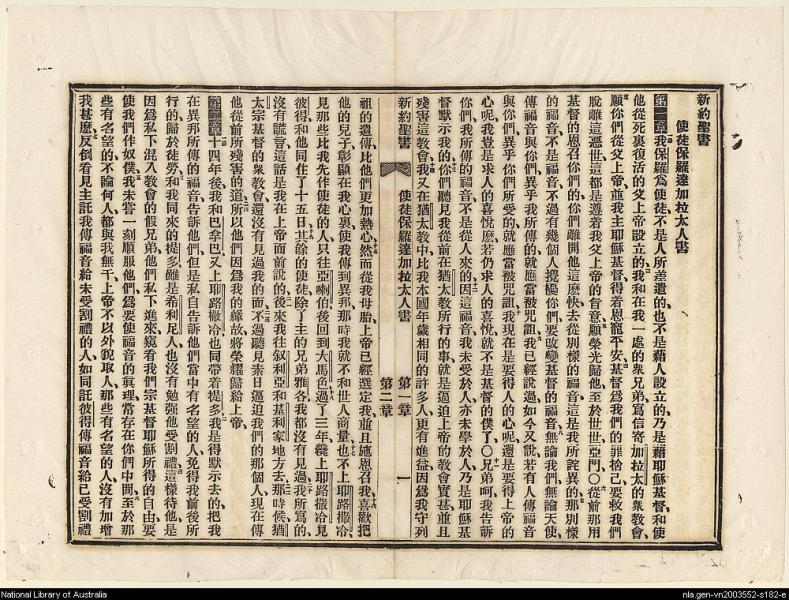 新約聖書
使徒保羅達加拉太人書
第一章我保羅爲使徒不是人所差遣的也不是藉人設立的乃是藉耶穌基督和使
他從死裏復活的父上帝設立的我和在我一處的衆兄弟寫信寄加拉太的衆教會
願你們從父上帝並我主耶穌基督得着恩寵平安基督爲我們的罪捨己要救我們
脫離這惡世這都是遵着我父上帝的旨意願榮光歸他至於世世亞門〇從前那用
基督的恩召你們的你們離開他這麼快去從別樣的福音這是我所詫異的那別樣
的福音不是福音不過有幾個人攪擾你們要改變基督的福音無論我們無論天使
傳福音與你們異乎我所傳的就應當被咒詛我已經說過如今又說若有人傳福音
與你們異乎你們所受的就應當被咒詛我現在是要得人的心呢還是要得上帝的
心呢我豈是求人的喜悅麼若仍求人的喜悅就不是基督的僕了〇兄弟呵我告訴
你們我所傳的福音不是從人來的因這福音我未受於人亦未學於人乃是耶穌基
督默示我的你們聽見我從前在猶太教所行的事就是逼迫上帝的教會實甚並且
殘害這教會我又在猶太教中比我本國年歲相同的許多人更有進益因爲我守列
新約聖書 使徒保羅達加拉太人書 第一章 第二章 一
祖的遺傳比他們更加熱心然而從我母胎上帝已經選定我並且施恩召我喜歡把
他的兒子彰顯在我心裏使我傳到異邦那時我就不和世人商量也不上耶路撒冷
見那些比我先作使徒的人只往亞喇伯後回到大馬色過了三年纔上耶路撒冷見
彼得和他同住了十五日其餘的使徒除了主的兄弟雅各我都沒有見過我所寫的
沒有謊言這話是我在上帝面前說的後來我往叙利亞和基利家地方去那時候猶
太宗基督的衆教會還沒有見過我的面不過聽見素日逼迫我們的那個人現在傳
他從前所殘害的道所以他們因爲我的緣故將榮耀歸給上帝
第二章十四年後我和巴拿巴又上耶路撒冷也同帶着提多我是得默示去的把我
在異邦所傳的福音告訴他們但是私自告訴他們當中有名望的人免得我前後所
行的歸於徒勞和我同來的提多雖是希利尼人也沒有勉強他受割禮這樣待他是
因爲私下混入教會的假兄弟他們私下進來窺看我們宗基督耶穌所得的自由要
使我們作奴僕我未嘗一刻順服他們爲要使福音的眞理常存在你們中間至於那
些有名望的不論何人都與我無干上帝不以外貌取人那些有名望的人沒有加增
我甚麼反倒看見主託我傳福音給未受割禮的人如同託彼得傳福音給已受割禮
National Library of Australia
nla.gen-vn2003552-s182-e